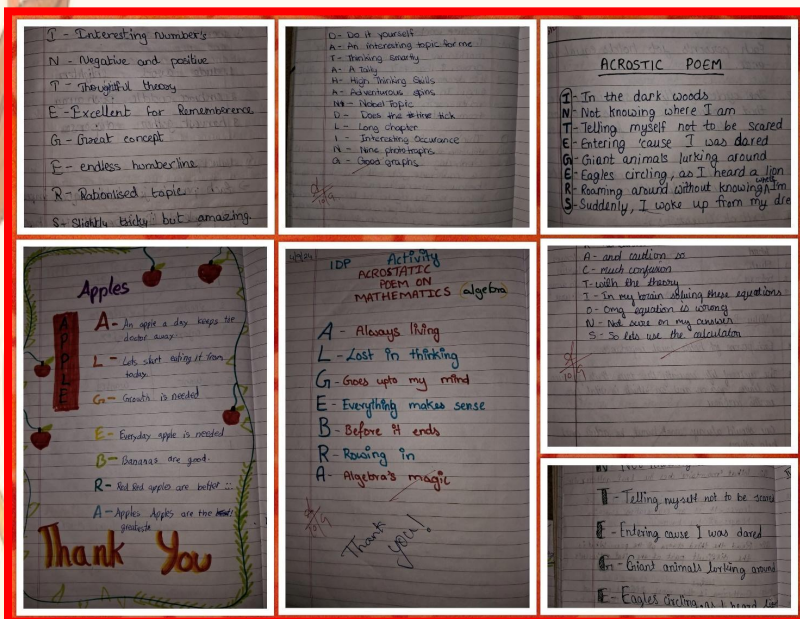 I - Interesting number's
N - Negative and positive
T - Thoughtful theory
E - Excellent for Rememberence
G - Great concept
E - endless numberline
R - Rationlised topic
S - Slightly tricky but amazing.
D - Do it yourself
A - An interesting topic for me
T - Thinking smartly
A - A Tally
H - High Thinking Skills
A - Adventurous spins
N - Nobel Topic
D - Does the tick
L - Long chapter
I - Interesting Occurance
N - Nine photographs
G - Good graphs
ACROSTIC POEM
I - In the dark woods
N - Not knowing where I am
T - Telling myself not to be scared
E - Entering 'cause I was dared
G - Giant animals lurking around
E - Eagles circling, as I heard a lion
R - Roaming around without knowing where I'm
S - Suddenly, I woke up from my dre
Apples
APPLE
A - An apple a day keeps the
doctor away.
L - Lets start eating it from
today.
G - Growth is needed
E - Everyday apple is needed
B - Bananas are good.
R - Red Red apples are better ::
A - Apples Apples are the
greatest
Thank You
IDP Activity
ACROSTATIC
POEM ON
MATHEMATICS algebra
A - Always living
L - Lost in thinking
G - Goes upto my mind
E - Everything makes sense
B - Before it ends
R - Rowing in
A - Algebra's magic
Thank you!
A - and caution so
C - much confusion
T - with the theory
I - In my brain solving these equations
O - Omg equation is wrong
N - Not sure on my answer
S - So lets use the calculator
T - Telling myself not to be scared
E - Entering cause I was dared
G - Giant animals lurking around
E - Eagles circling, as I heard